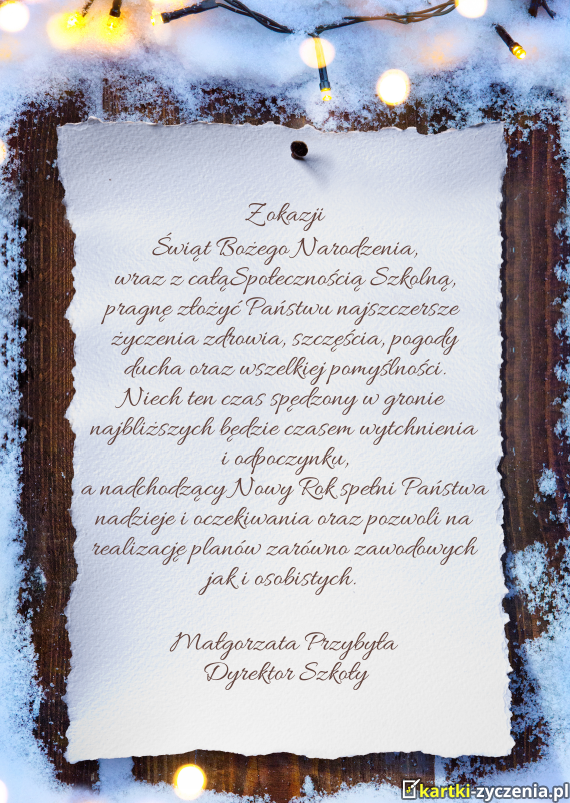 Z okazji
Świąt Bożego Narodzenia,
wraz z całą Społecznością Szkolną,
pragnę złożyć Państwu najszczersze
życzenia zdrowia, szczęścia, pogody
ducha oraz wszelkiej pomyślności.
Niech ten czas spędzony w gronie
najbliższych będzie czasem wytchnienia
i odpoczynku,
a nadchodzący Nowy Rok spełni Państwa
nadzieje i oczekiwania oraz pozwoli na
realizację planów zarówno zawodowych
jak i osobistych.
Małgorzata Przybyła
Dyrektor Szkoły
kartki-zyczenia.pl